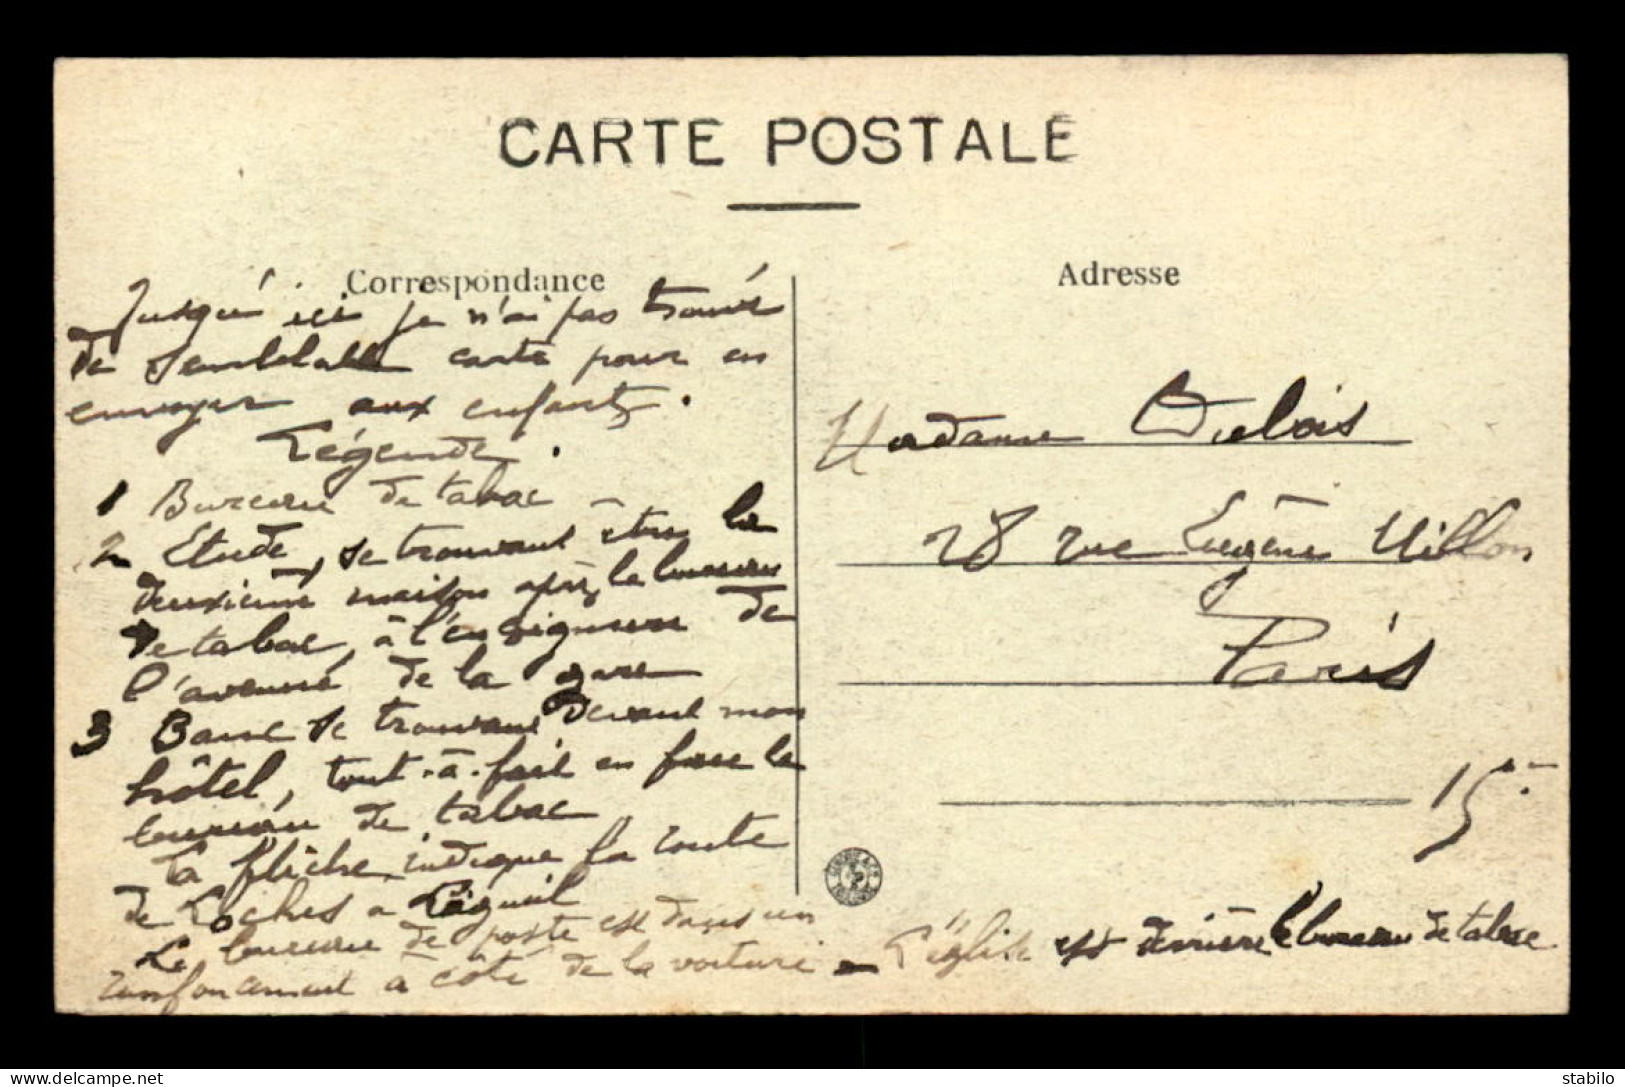 CARTE POSTALE
Correspondance
Jusqu'ici je n'ai pas trouvé
de semblable carte pour en
envoyer aux enfants.
Légende.
1 Bureau de tabac
2 Etude, se trouvant être la
deuxième maison après le bureau
de tabac, à l'en de
l'avenue de la gare
3 Banc se trouvant devant mon
hôtel, tout-à-fait en face le
bureau de tabac
La flèche indique la route
de Loches a Ligueil
Le bureau de poste est dans un
renfoncement a côté de la voiture — L'église est derrière le bureau de tabac.
Adresse
Madame Dubois
28 rue Eugène Millon
Paris
15e
delcampe.net
stabilo